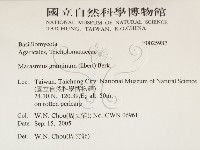 國立自然科學博物館
NATIONAL MUSEUM OF NATURAL SCIENCE
TAICHUNG, TAIWAN, R.O.CHINA
Basidiomycota
Agaricales, Tricholomataceae
Marasmius graminum (Libert) Berk.
Loc: Taiwan, Taichung City, National Museum of Natural Science
(國立自然科學博物館)
alt. 50m
on rotten pericarp
Col: W.N. Chou No: CWN 06961
Date: Sep. 15, 2005
Det: W.N. Chou